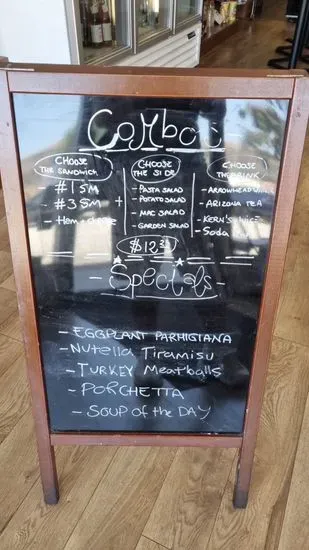 Combos
CHOOSE THE SANDWICH
- #1 SM
- #3 SM
- Ham + cheese
+
CHOOSE THE SIDE
- PASTA SALAD
- POTATO SALAD
- MAC SALAD
- GARDEN SALAD
CHOOSE THE DRINK
- ARROWHEAD
- ARIZONA TEA
- KERN'S
- Soda
$12
- Specials -
- EGGPLANT PARMIGIANA
- NUTELLA TIRAMISU
- TURKEY MEATBALLS
- PORCHETTA
- SOUP OF THE DAY